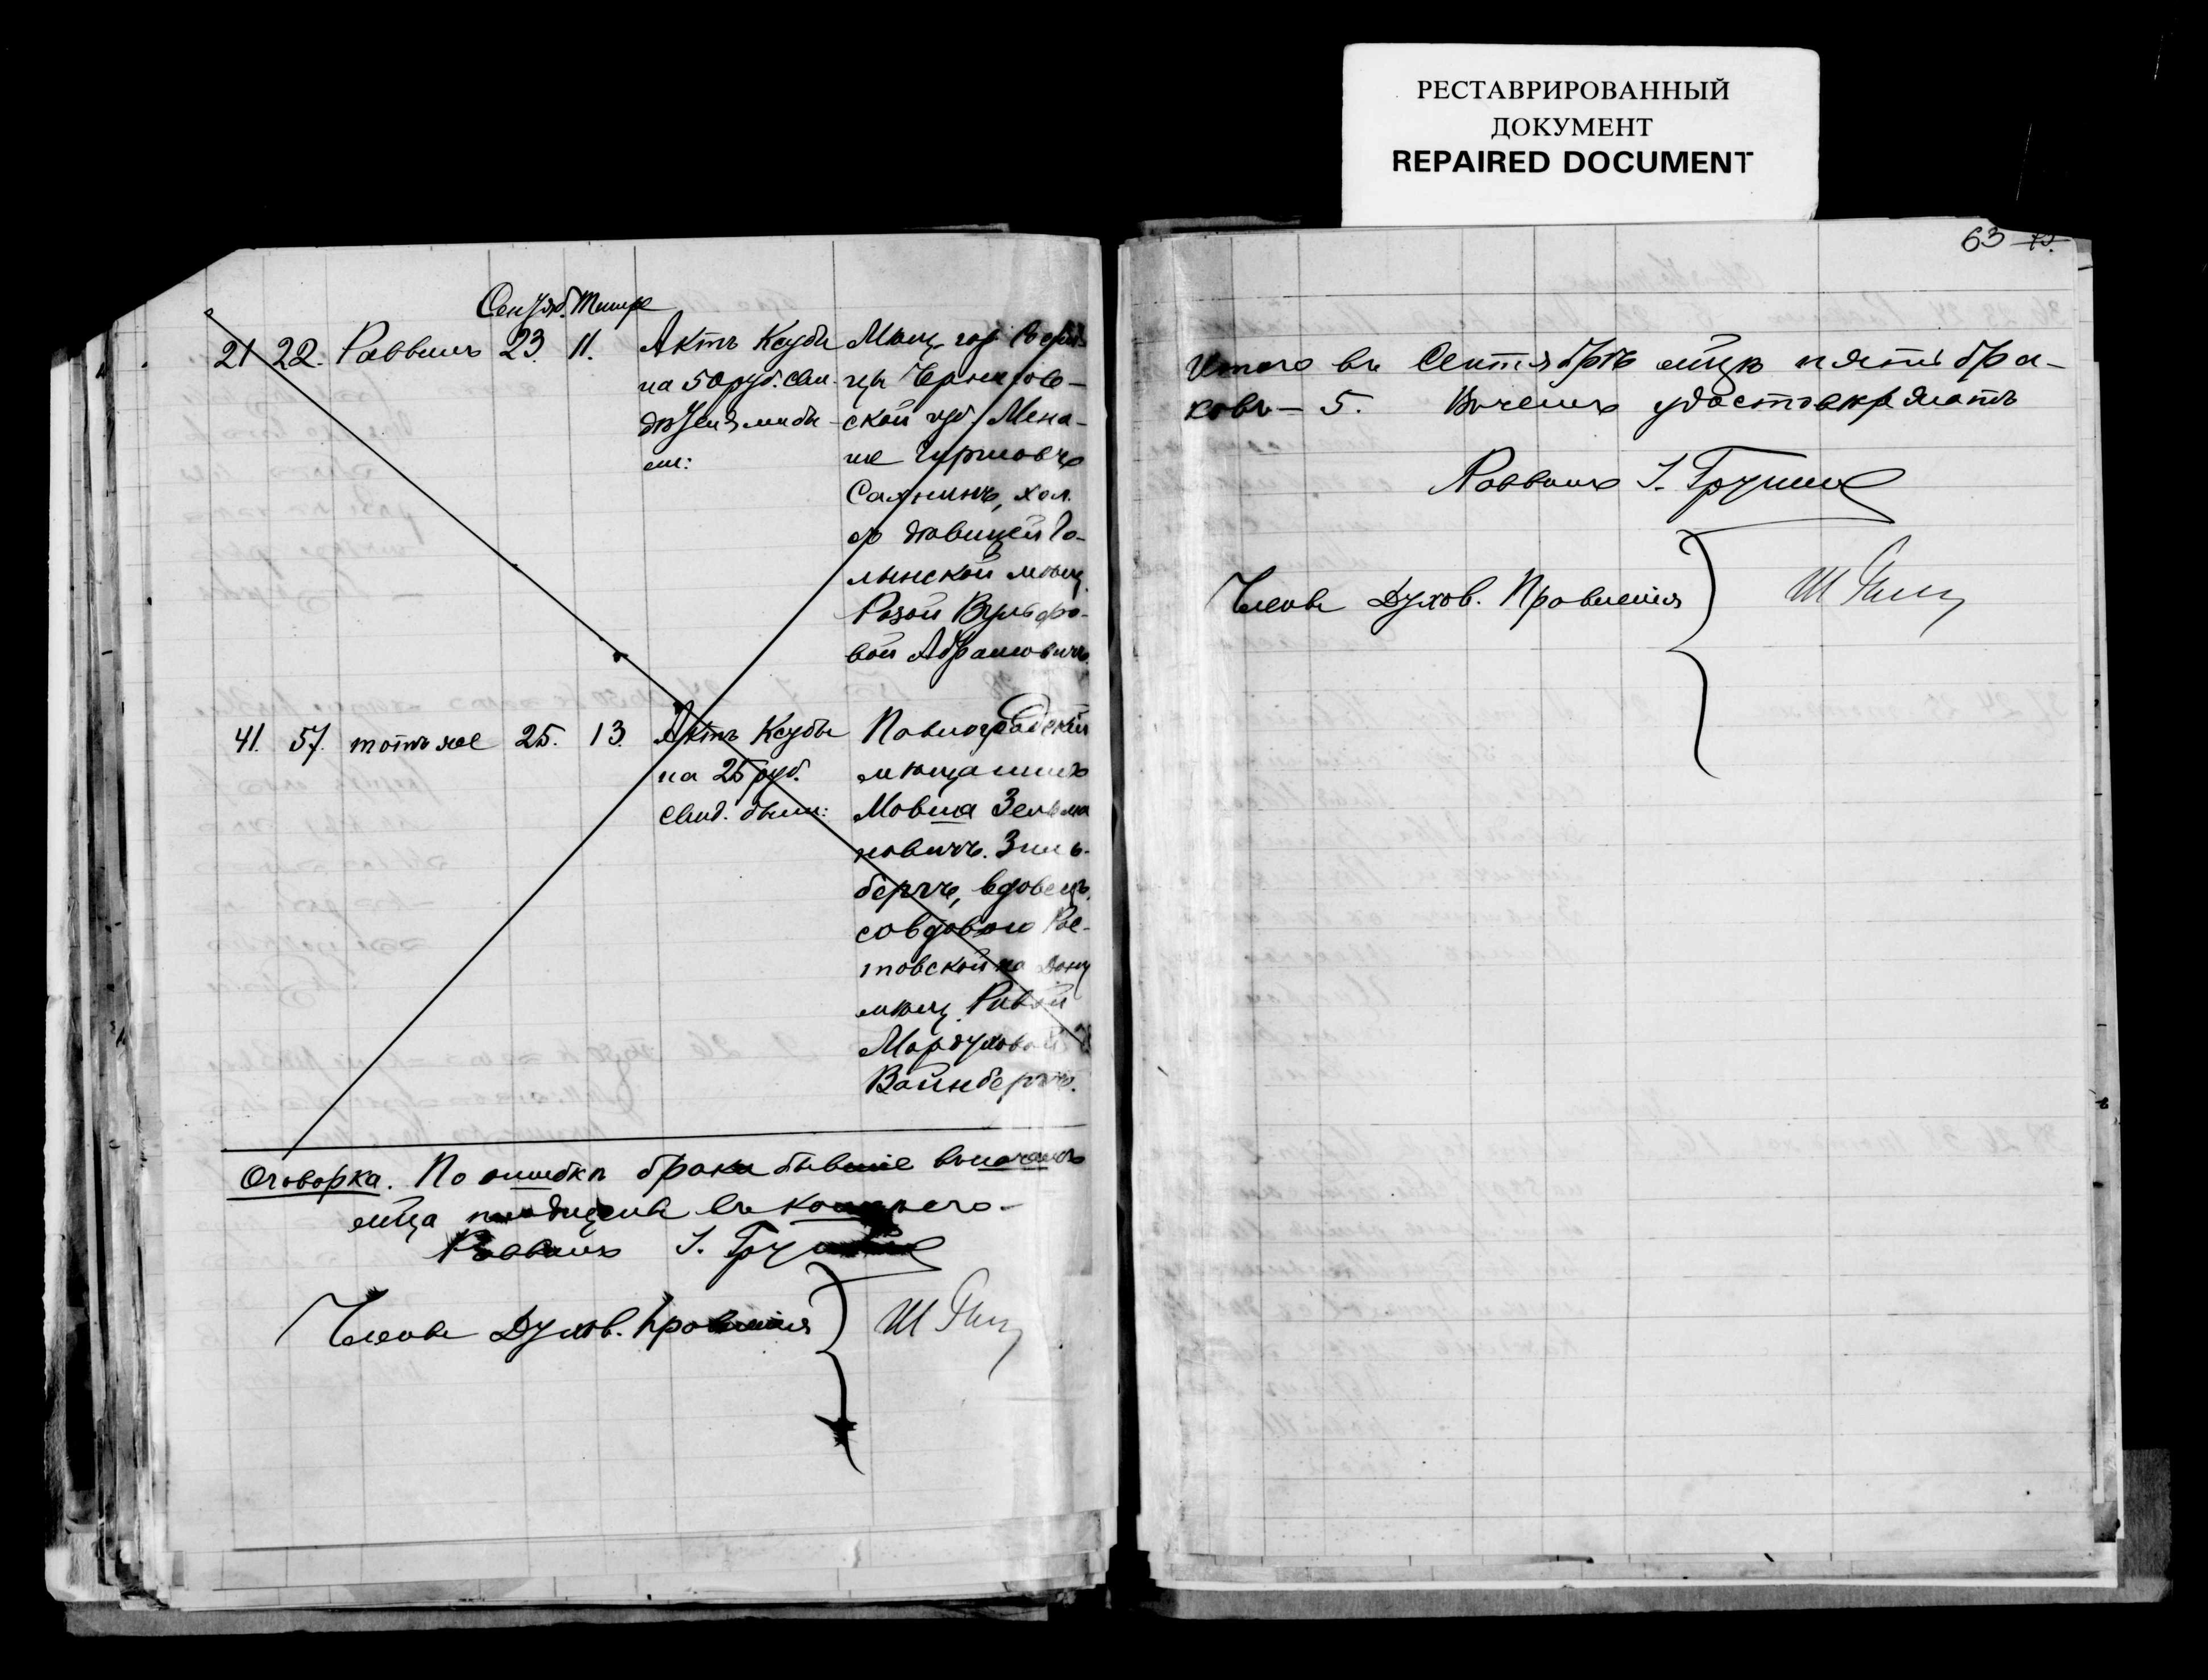 РЕСТАВРИРОВАННЫЙ
ДОКУМЕНТ
REPAIRED DOCUMENT
Сентяб. Тишре
21 22. Раввинъ 23. 11.
Актъ Ксубы
на 50 руб. сви-
дѣтелями бы-
ли:
Мѣщ. гор.
Чернигов-
ской губ. Мена-
ше Гиршовъ
хол.
съ дѣвицей Го-
лынской мѣщ.
Розой Вульфо-
вой Абрамовичъ.
41. 57. тотъ же 25. 13.
Актъ Ксубы
на 25 руб.
свид. были:
Павлоградскій
мѣщанинъ
Мовша Зельма
новичъ Зиль-
бергъ, вдовецъ,
со вдовою Рос-
товской на Дону
мѣщ.
Мордуховой
Вайнбергъ.
Оговорка. По ошибкѣ браки бывшіе въ
м-ца въ
Раввинъ I.
Члены Духов. Правленія
63
Итого въ Сентябрѣ м-цѣ пять бра-
ковъ — 5. Въ чемъ удостовѣряютъ
Раввинъ I.
Члены Духов. Правленія